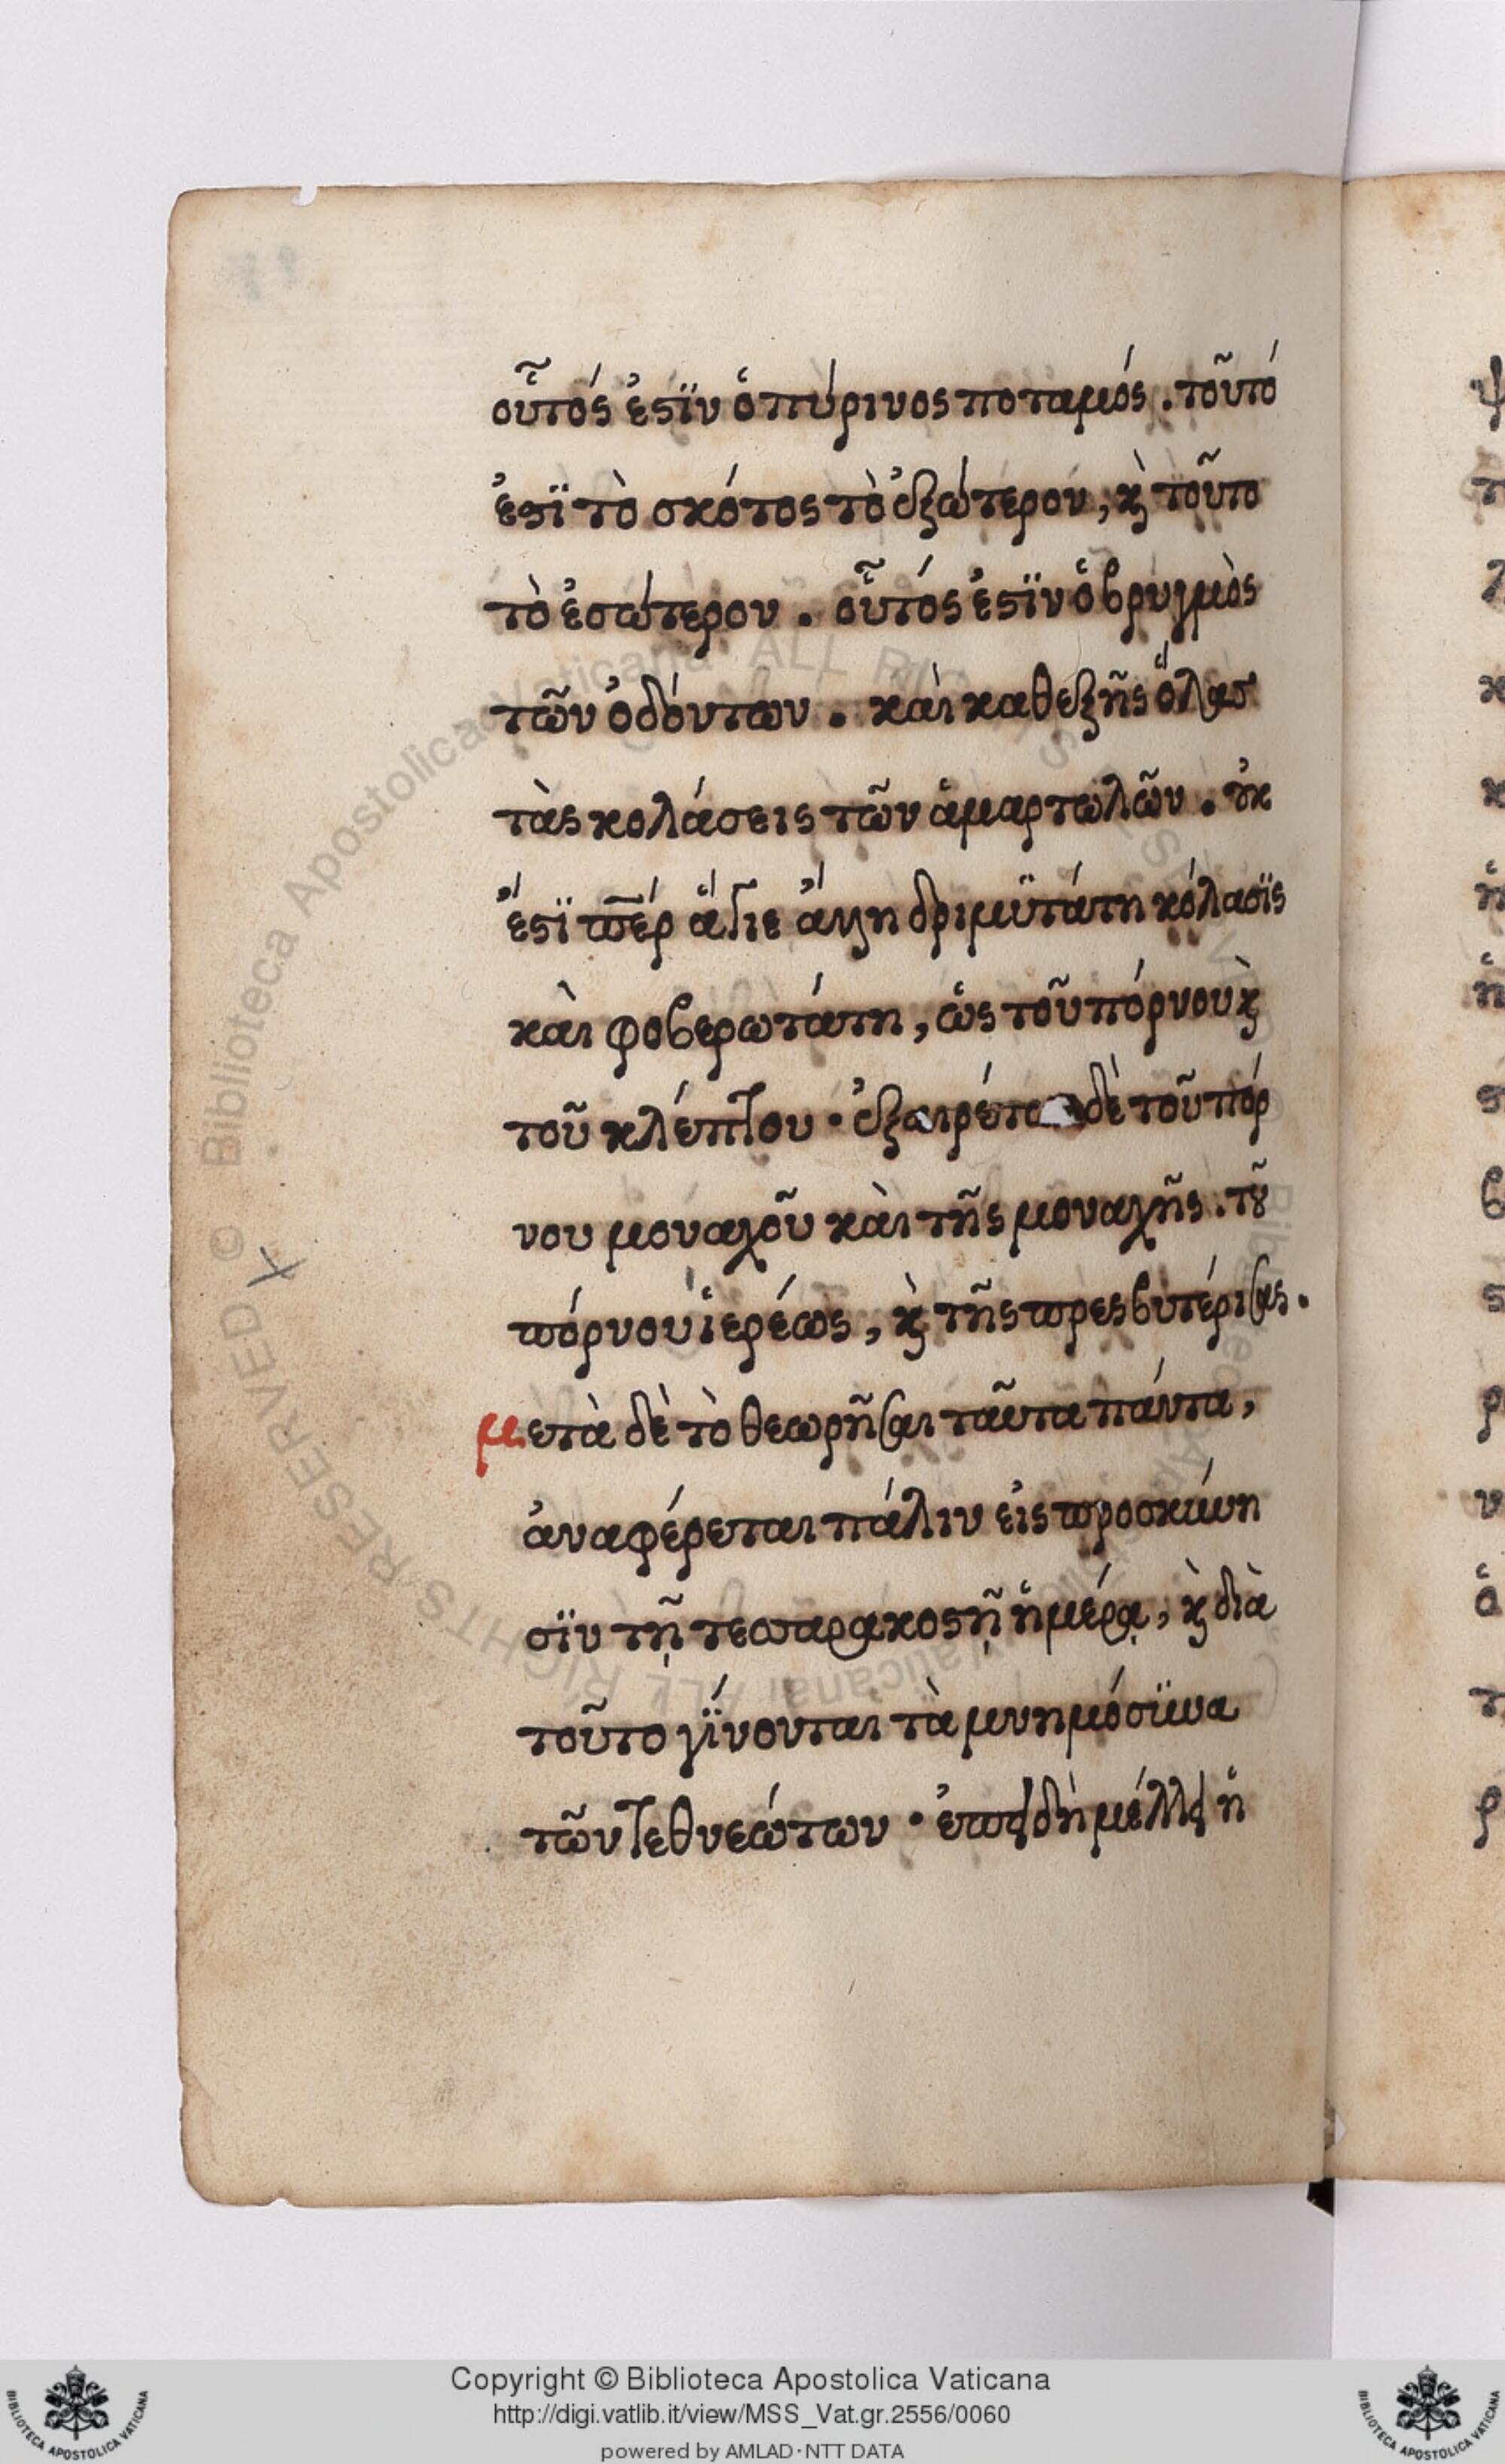 οὗτός ἐστϊν ὁ πύρινος ποταμός. τοῦτό
ἐστϊ τὸ σκότος τὸ ἐξώτερον, κ̀ τοῦτο
τὸ ἐσώτερον. οὗτός ἐστϊν ὁ βρυγμὸς
τῶν ὀδόντων. καὶ καθεξῆς ὅλας
τὰς κολάσεις τῶν ἁμαρτωλῶν. οὐκ
ἔστϊ πέρ ἅγιε ἄλλη δριμϋτάτη κόλασϊς
καὶ φοβερωτάτη, ὡς τοῦ πόρνου κ̀
τοῦ κλέπτου· δὲ τοῦ πόρ
νου μοναχοῦ καὶ τῆς μοναχῆς. τοῦ
πόρνου ἱερέως, κ̀ τῆς πρεσβυτέρισας.
μετὰ δὲ τὸ θεωρῆσαι ταῦτα πάντα,
ἀναφέρεται πάλιν εἰς προσκύνη
σϊν τῇ τεσσαρακοστῇ ἡμέρᾳ, κ̀ διὰ
τοῦτο γΐνονται τὰ μνημόσϋνα
τῶν τεθνεώτων· ἐπεὶ δὴ μέλλει ἡ
Copyright © Biblioteca Apostolica Vaticana
http://digi.vatlib.it/view/MSS_Vat.gr.2556/0060
powered by AMLAD·NTT DATA